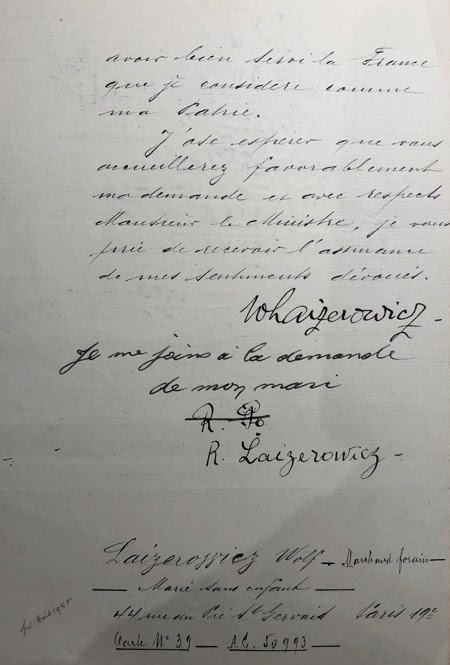 avoir bien servi la France
que je considère comme
ma Patrie.
J'ose espérer que vous
accueillerez favorablement
ma demande et avec respects
Monsieur le Ministre, je vous
prie de recevoir l'assurance
de mes sentiments dévoués.
WLaizerowicz -
Je me joins à la demande
de mon mari
R. Po
R. Laizerowicz -
Laizerowicz Wolf - Marchand forain -
— Marié sans enfant —
44 rue du Pré St Gervais Paris 19e
Carte N° 39 — A.C. 50993 —
Août 1945